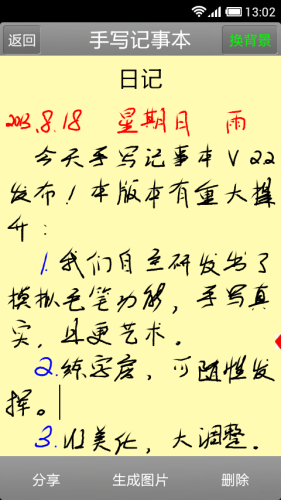 13:02
返回 手写记事本 换背景
日记
2013.8.18 星期日 雨
今天手写记事本V2.2
发布！本版本有重大提
升：
1.我们自主研发出了
模拟毛笔功能，手写真
实，且更艺术。
2.练字度，可随性发
挥。
3.UI美化，大调整。
分享 生成图片 删除